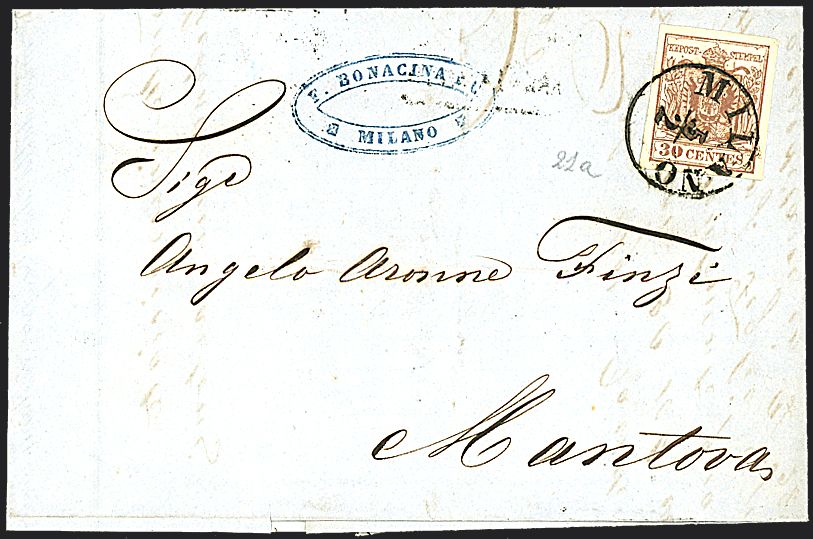 F. BONACINA E C.
MILANO
K.K. POST-STEMPEL
30 CENTES
MILANO
22a
Sigr
Angelo Aronne Finzi
Mantova